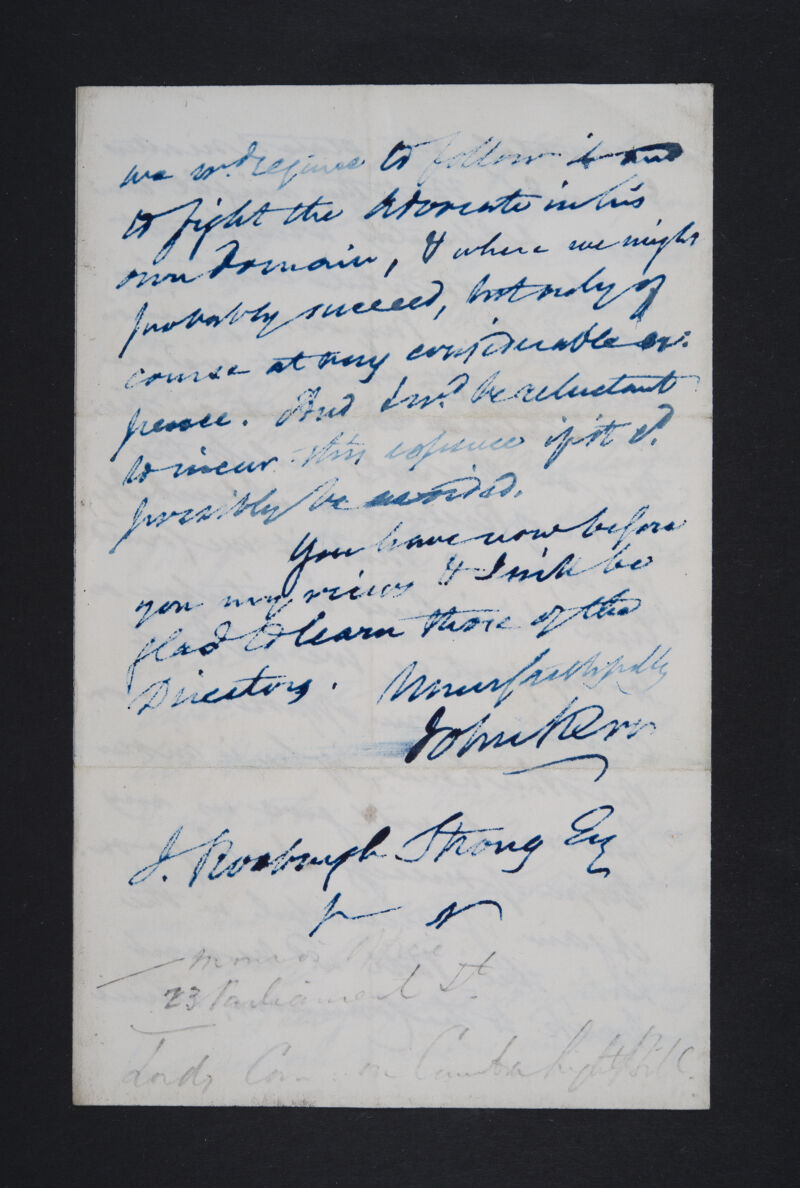 we wd require to follow it and
to fight the Advocate in his
own domain, & where we might
probably succeed, but only of
course at very considerable ex:
pence. And I wd be reluctant
to incur this expence if it cd.
possibly be avoided.
You have now before
you my views & I will be
glad to learn those of the
Directors. Yours faithfully
John Kerr
J. Roxburgh Strong Esq
23 Parliament St.
Lords Com on